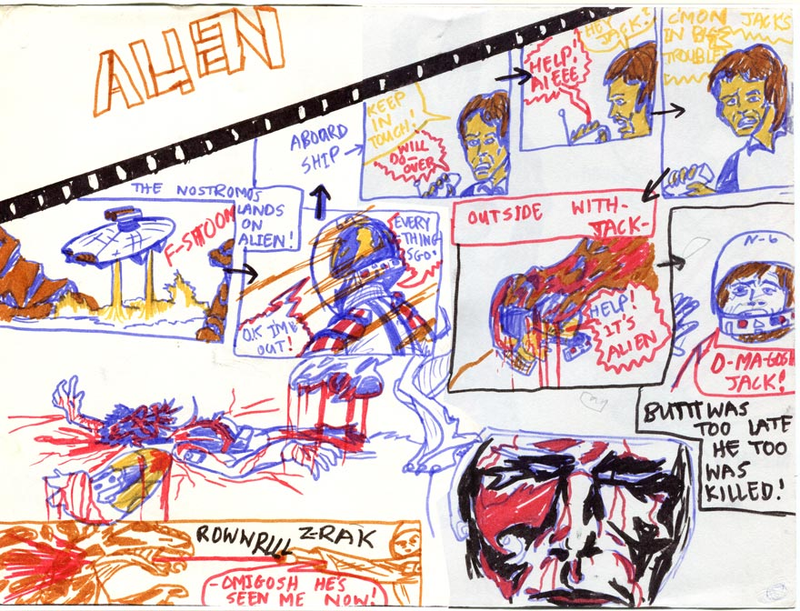 ALIEN
THE NOSTROMOS
LANDS
ON
ALIEN!
F-SHOOM
O.K I'M
OUT!
EVERY
-THING
SGO!
ABOARD
SHIP
KEEP
IN
TOUCH!
WILL
DO-
OVER
HEY
JACK!
HELP!
AIEEE
C'MON JACK'S
IN BIG
TROUBLE
OUTSIDE WITH-
JACK-
HELP!
IT'S
ALIEN
N-6
O-MA-GOSH
JACK!
BUTIT WAS
TOO LATE
HE TOO
WAS
KILLED!
ROWNRLLL Z-RAK
-OMIGOSH HE'S
SEEN ME NOW!